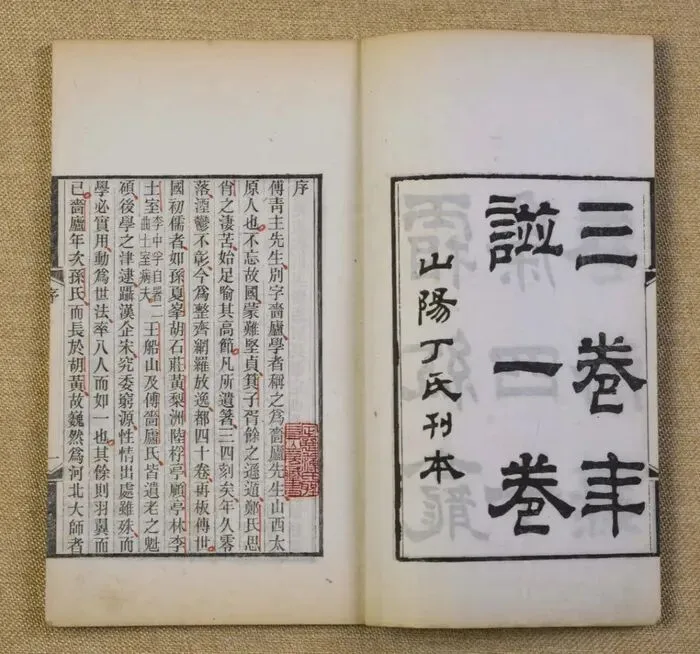 三卷年
譜一卷
山陽丁氏刊本
序
傅青主先生別字嗇廬學者稱之爲嗇廬先生山西太
原人也不忘故國蒙難堅貞箕子胥餘之遯鄭氏思
肖之淒苦始足喻其高節凡所遺箸三四刻矣年久零
落湮鬱不彰今爲整齊網羅放逸都四十卷再板傳世
國初儒者如孫夏峯胡石莊黃梨洲陸桴亭顧亭林李
土室李中孚自署二曲土室病夫王船山及傅嗇廬氏皆遺老之魁
碩後學之津逮躡漢企宋究委窮源性情出處雖殊而
學必實用動爲世法率八人而如一也其餘則羽翼而
已嗇廬年次孫氏而長於胡黃故巍然爲河北大師者
序
一